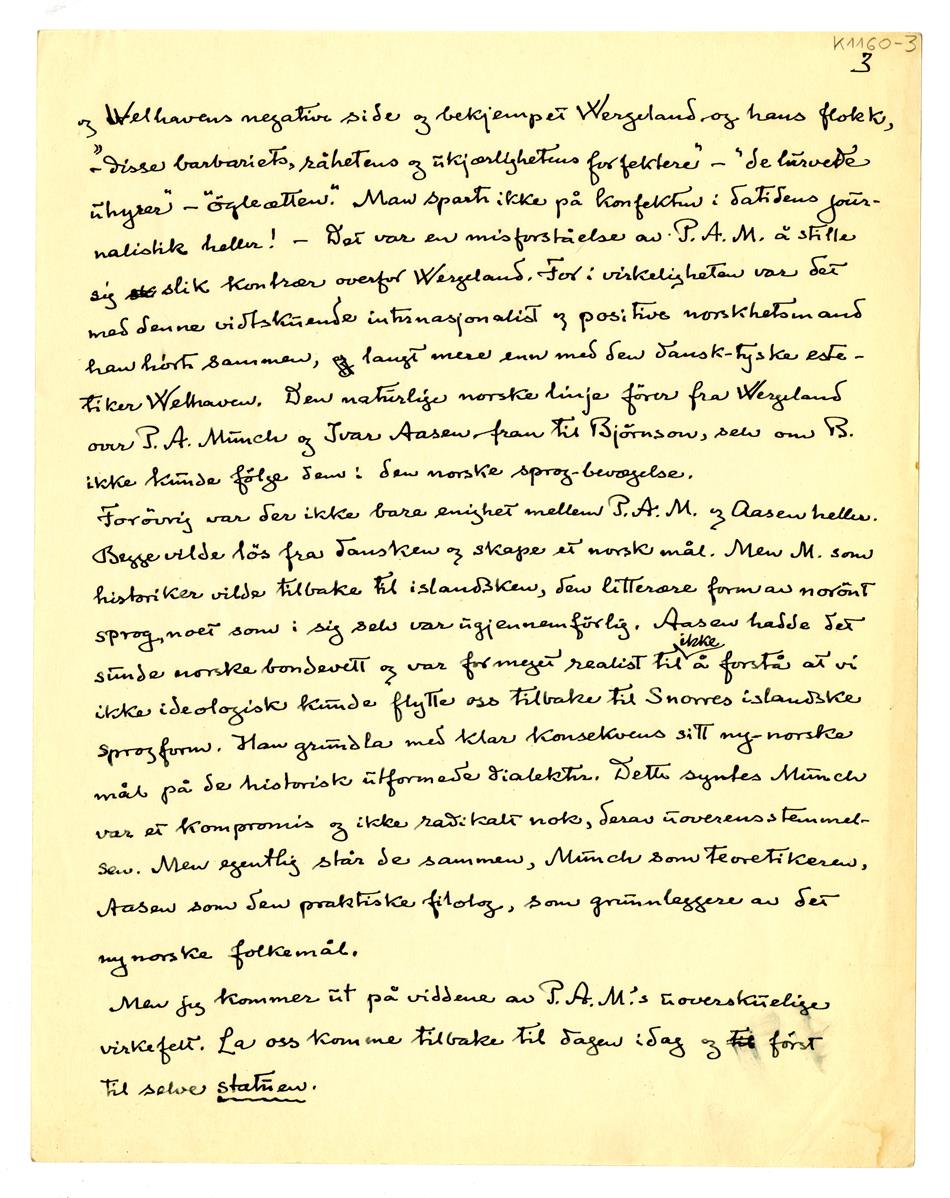 K1160-3
3
og Welhavens negative side og bekjempet Wergeland og hans flokk,
- "disse barbariets, råhetens og ukjærlighetens forfektere" - "de lurvede
uhyrer" - "ögleætten". Man sparte ikke på konfekten i datidens jour-
nalistik heller! - Det var en misforståelse av P. A. M. å stille
sig slik kontrær overfor Wergeland. For i virkeligheten var det
med denne vidtskuende internasjonalist og positive norskhetsmand
han hörte sammen, og langt mere enn med den dansk-tyske este-
tiker Welhaven. Den naturlige norske linje förer fra Wergeland
over P. A. Munch og Ivar Aasen fram til Björnson, selv om B.
ikke kunde fölge dem i den norske sprog-bevægelse.
Forövrig var der ikke bare enighet mellem P. A. M. og Aasen heller.
Begge vilde lös fra dansken og skape et norsk mål. Men M. som
historiker vilde tilbake til islandsken, den litterære form av norönt
sprog, noet som i sig selv var ugjennemförlig. Aasen hadde det
sunde norske bondevett og var for meget realist til ikke å forstå at vi
ikke ideologisk kunde flytte oss tilbake til Snorres islandske
sprogform. Han grundla med klar konsekvens sitt ny-norske
mål på de historisk utformede dialekter. Dette syntes Munch
var et kompromis og ikke radikalt nok, derav uoverensstemmel-
sen. Men egentlig står de sammen, Munch som teoretikeren,
Aasen som den praktiske filolog, som grunnleggere av det
nynorske folkemål.
Men jeg kommer ut på viddene av P. A. M.'s uoverskuelige
virkefelt. La oss komme tilbake til dagen idag og til först
til selve statuen.